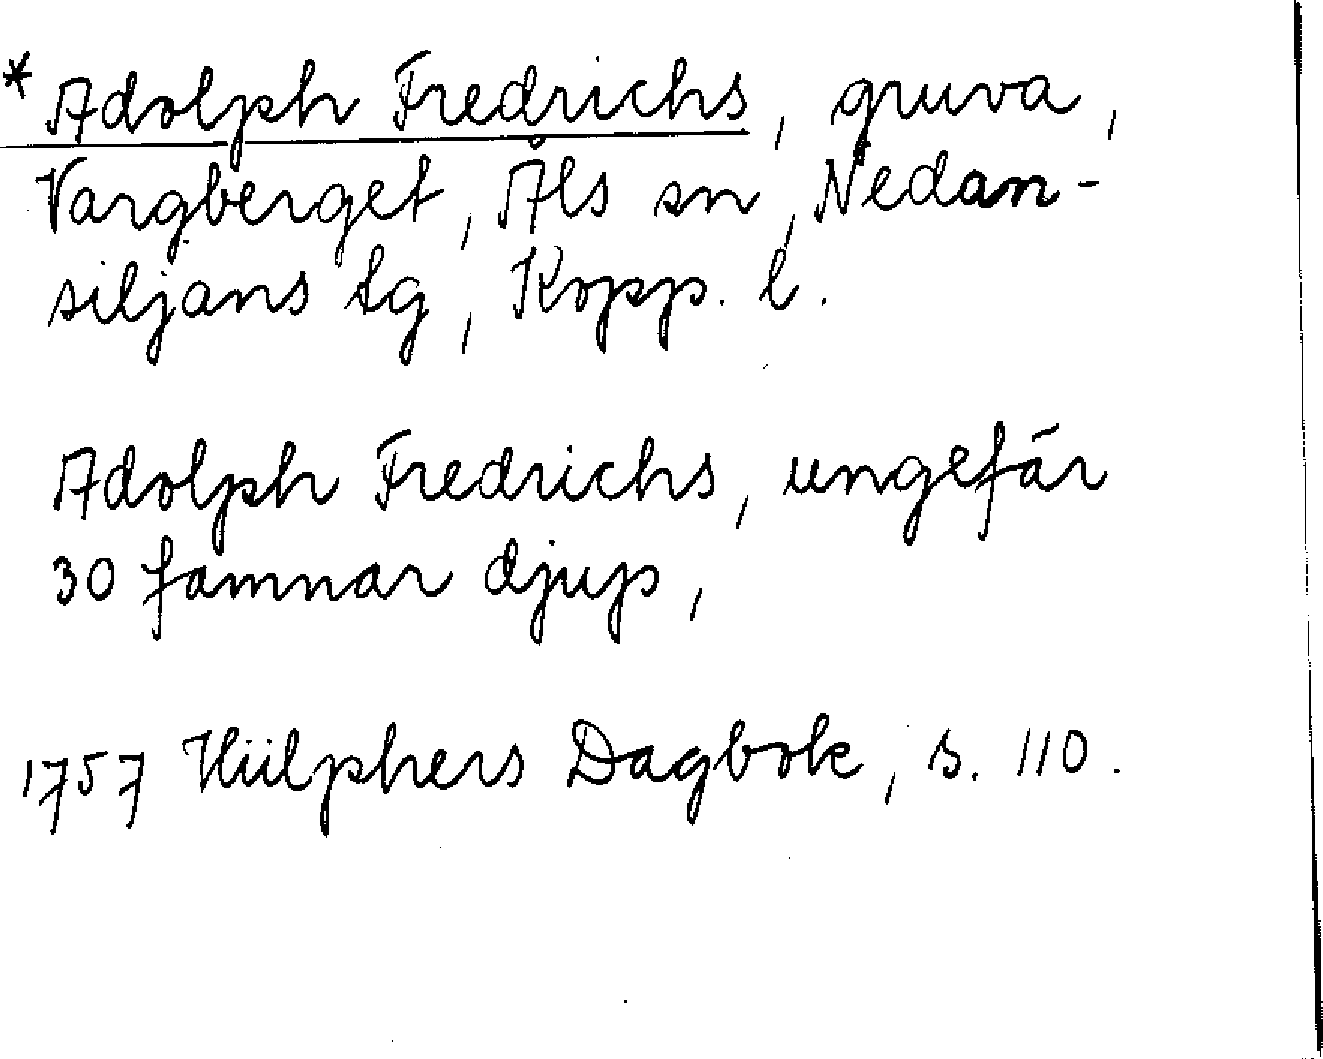 * Adolph Fredrichs, gruva,
Vargberget, Åls sn, Nedan-
siljans tg, Kopp. l.
Adolph Fredrichs, ungefär
30 famnar djup,
1757 Hülphers Dagbok, s. 110.